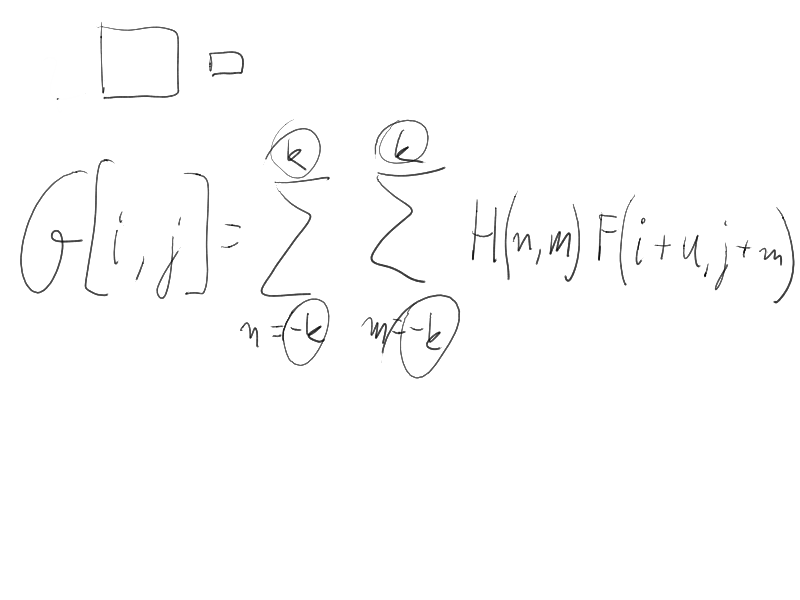 G[i, j] = \sum_{n=-k}^{k} \sum_{m=-k}^{k} H(n,m) F(i+u, j+m)